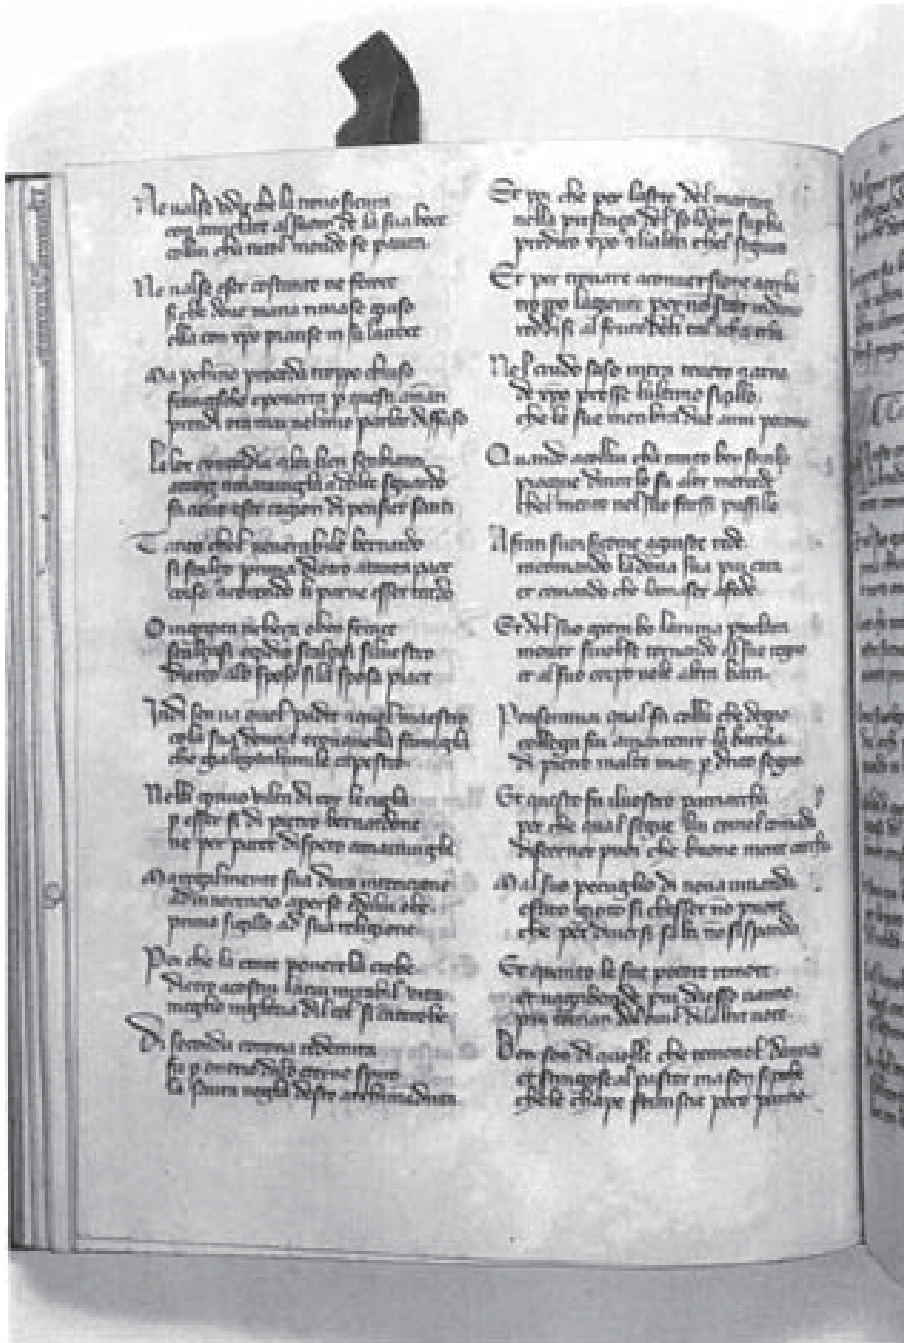 Ne valse udir che la trovo sicura
con amiclate al suon de la sua voce
colui cha tucto l mondo fe paura
Ne valse esser costante ne feroce
si che dove maria rimase giuso
ella con xpo pianse in su la croce
Ma perchio non proceda troppo chiuso
francesco e poverta p questi amanti
prendi oramai nel mio parlar diffuso
La lor concordia e lor lieti sembianti
amor e maraviglia e dolce sguardo
fa ceno esser cagion di pensier santi
Tanto chel venerabile bernardo
si scalzo prima dietro a tanta pace
corse e correndo li parve esser tardo
O ignota richeza o ben ferace
scalzasi egidio scalzasi silvestro
dietro alo sposo si la sposa piace
Indi sen va quel padre e quel maestro
co la sua donna e con quella famiglia
che gia legava lumile capestro
Ne li gravo vilta di cor le ciglia
p esser fi di pietro bernardone
ne per parer dispecto a maraviglia
Ma regalmente sua dura intencione
ad inocencio aperse e da lui ebe
primo sigillo ad sua religione
Poi che la gente poverella crebe
dietro a costui la cui mirabil vita
meglio in gloria del ciel si canterebe
Di secunda corona redemita
fu p onorio da lo eterno spiro
la santa voglia desto archimandrita
Et poi che per la sete del martiro
nella presenza del soldan superba
predico xpo e li altri chel seguiro
Et per trovare a conversione acerba
troppo la gente per non stare indarno
reddisi al fructo del italica erba
Nel crudo saso intra tevere e arno
da xpo prese lultimo sigillo
che le sue membra due anni portarno
Quando a colui cha tanto ben sortillo
piaque di trarlo su a la mercede
chel merito nel suo farsi pusillo
A frati suoi si come a giuste rede
racomando la dona sua piu cara
et comando che lamaser a fede
Et del suo grembo lanima preclara
mover si volse tornando al suo regno
et al suo corpo nolle altra bara
Pensa omai qual fu colui che degno
collega fu a mantener la barcha
di pietro in alto mar p drito segno
Et questo fu il nostro patriarcha
per che qual segue lui comel comanda
discerner puoi che buone merce carcha
Mal suo peculglio di nova vivanda
e facto giotto si chesser no puote
che per diversi salti no si spanda
Et quanto le sue pecore remote
et vagabunde piu da esso vanno
piu tornan a lovil di lacte vote
Ben son di quelle che temono l danno
et stringose al pastor ma son si poche
che le chape fornisce poco panno